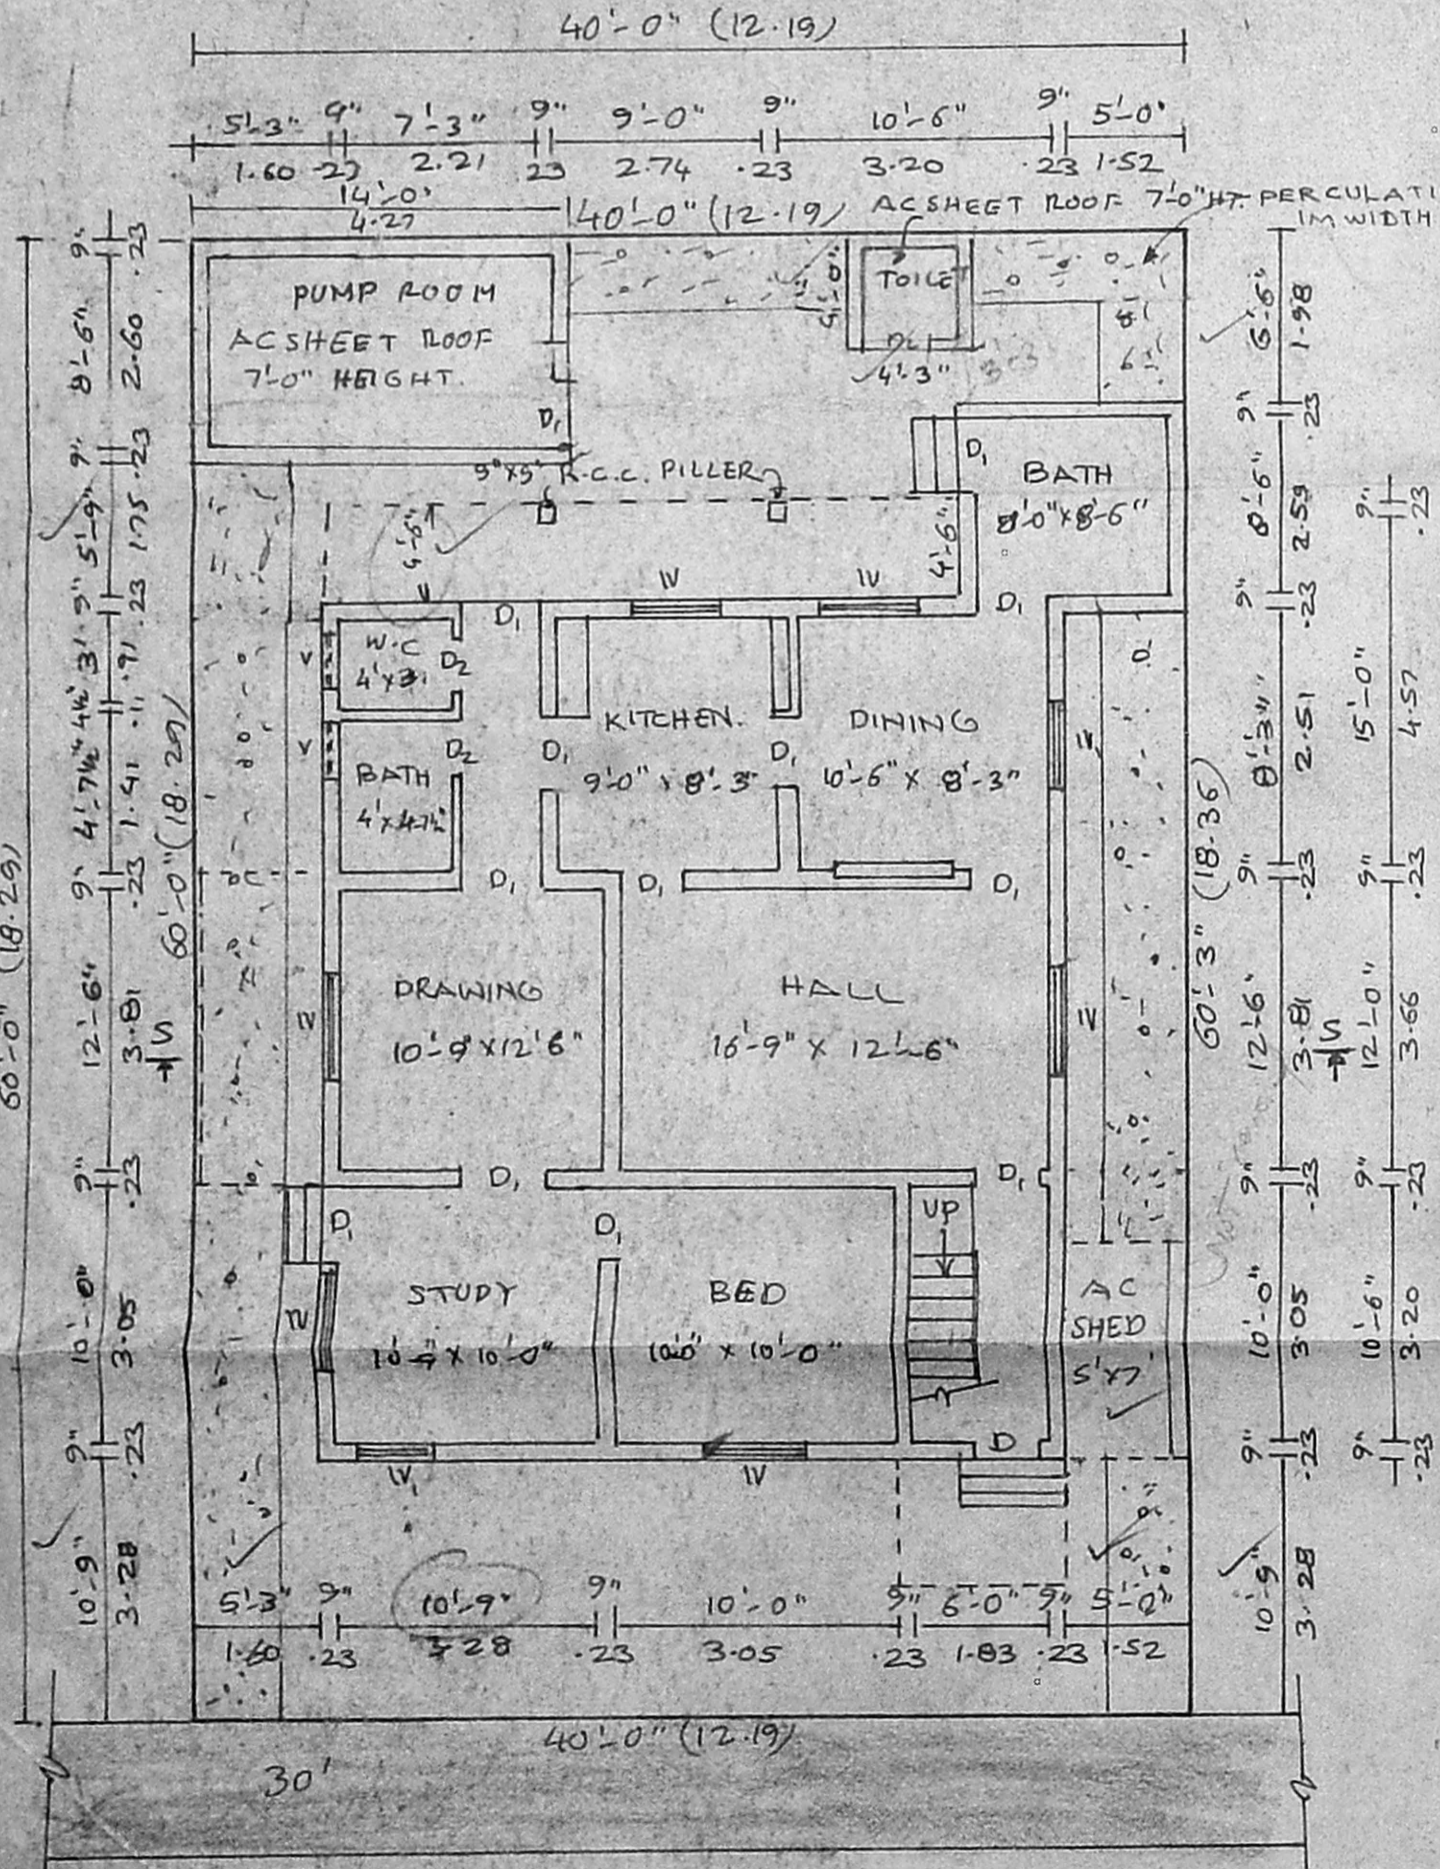 40'-0" (12.19)
5'-3" 9" 7'-3" 9" 9'-0" 9" 10'-6" 9" 5'-0"
1.60 .23 2.21 23 2.74 .23 3.20 .23 1.52
14'-0"
4.27
40'-0" (12.19) AC SHEET ROOF 7'-0" HT. PERCULATI
1M WIDTH
PUMP ROOM
AC SHEET ROOF
7'-0" HEIGHT.
D1
TOILET
4'-3"
9" X 9" R.C.C. PILLER
D1
BATH
8'-6"
4'-6"
W W
D1 D1
W.C
4'X3'
V D2
KITCHEN.
9'-0" X 8'-3"
DINING
10'-6" X 8'-3"
V D2 D1 D1 W1
BATH
4'X4-7½"
D1 D1 D1
DRAWING
10'-9" X 12'6"
HALL
16'-9" X 12'-6"
W W
D1 D1
UP
D1 D1
STUDY
X 10'-0"
BED
10'0" X 10'-0"
W
AC
SHED
5'X7'
D
W1 W
5'-3" 9" 10'-9" 9" 10'-0" 9" 6'-0" 9" 5'-0"
1.60 .23 3.28 .23 3.05 .23 1.83 .23 1.52
40'-0" (12.19)
30'
60'-0" (18.29)
9" 8'-6" 9" 5'-9" 9" 3' 4½" 4'-7½" 9" 12'-6" 9" 10'-0" 9" 10'-9"
.23 2.60 .23 1.75 .23 .91 .11 1.41 .23 3.81 .23 3.05 .23 3.28
S
60'-0" (18.29)
60'-3" (18.36)
6'-6" 9" 8'-6" 9" 8'-3" 9" 12'-6" 9" 10'-0" 9" 10'-9"
1.98 .23 2.59 .23 2.51 .23 3.81 .23 3.05 .23 3.28
S
9" 15'-0" 9" 12'-0" 9" 10'-6" 9"
.23 4.57 .23 3.66 .23 3.20 .23